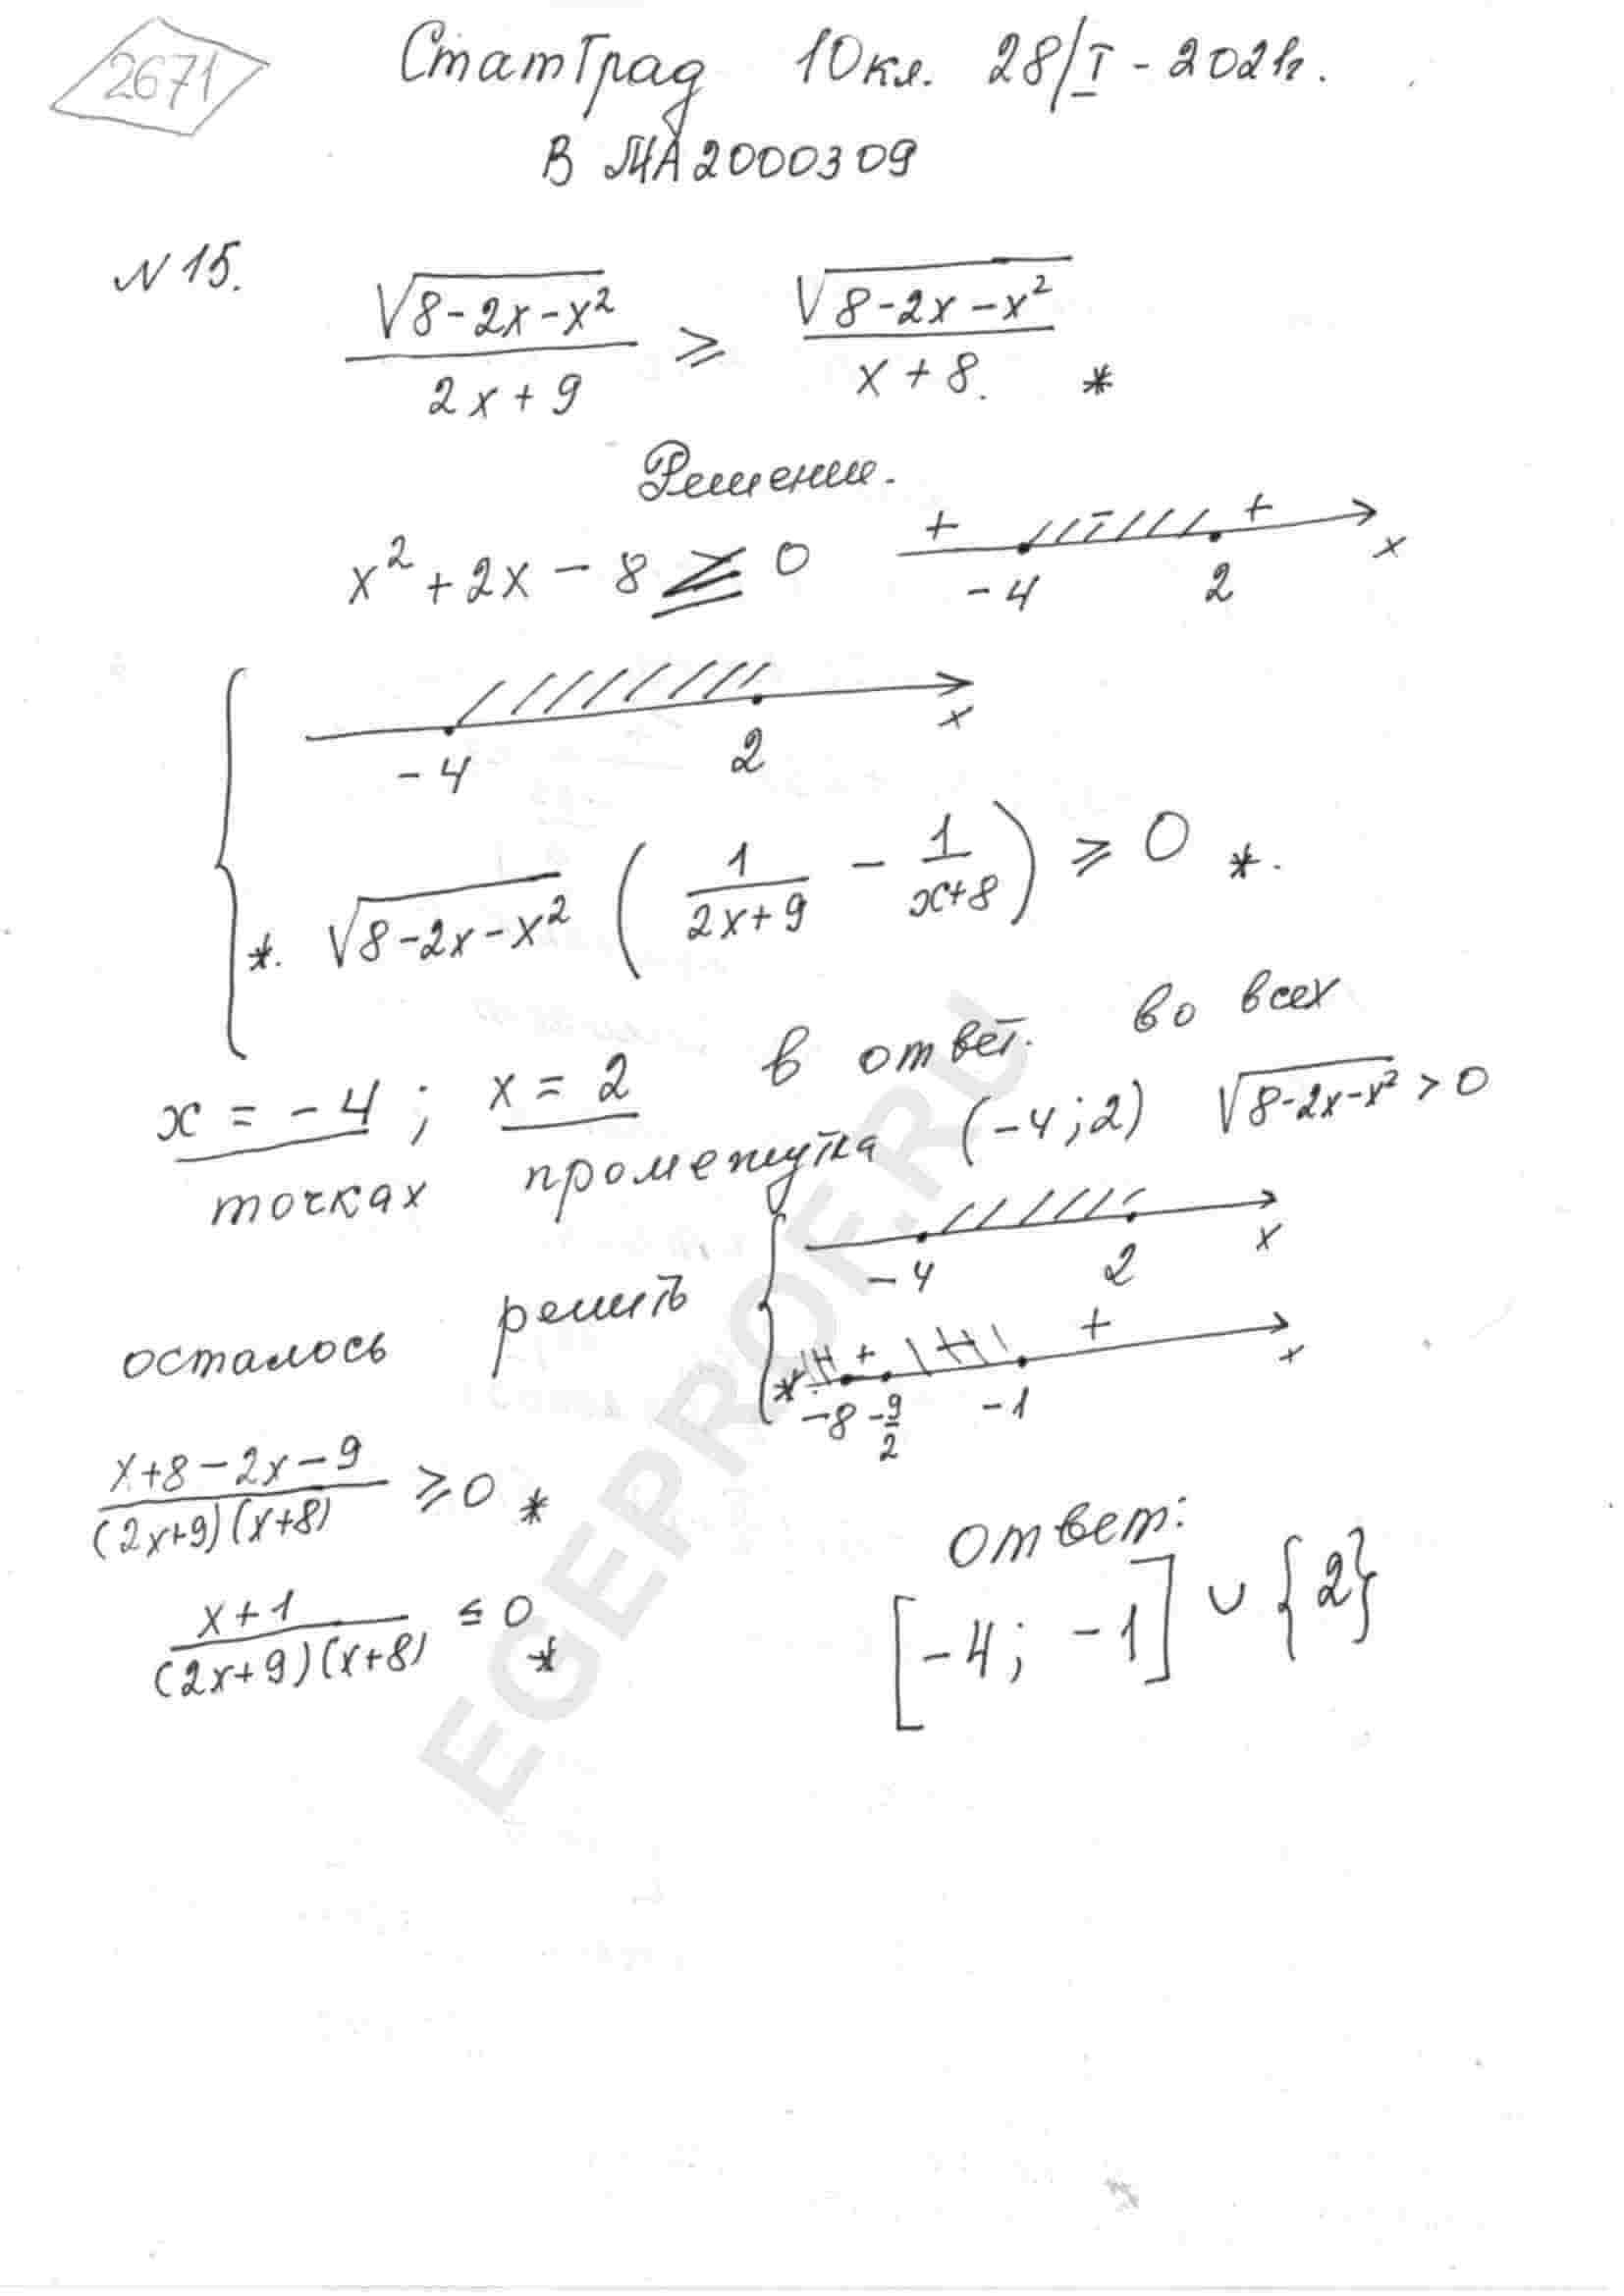 2671
СтатГрад 10кл. 28/I - 2021г.
В МА2000309
N 15.
√(8-2x-x²) / (2x+9) ≥ √(8-2x-x²) / (x+8). *
Решение.
x² + 2x - 8 ≤ 0
+ - + x
-4 2
-4 2 x
*. √(8-2x-x²) (1/(2x+9) - 1/(x+8)) ≥ 0 *.
x = -4 ; x = 2 в ответ. во всех
точках промежутка (-4;2) √(8-2x-x²) > 0
осталось решить
-4 2 x
*. + + x
-8 -9/2 -1
(x+8-2x-9) / ((2x+9)(x+8)) ≥ 0 *
(x+1) / ((2x+9)(x+8)) ≤ 0 *
ответ:
[-4; -1] ∪ {2}
EGEPROF.RU